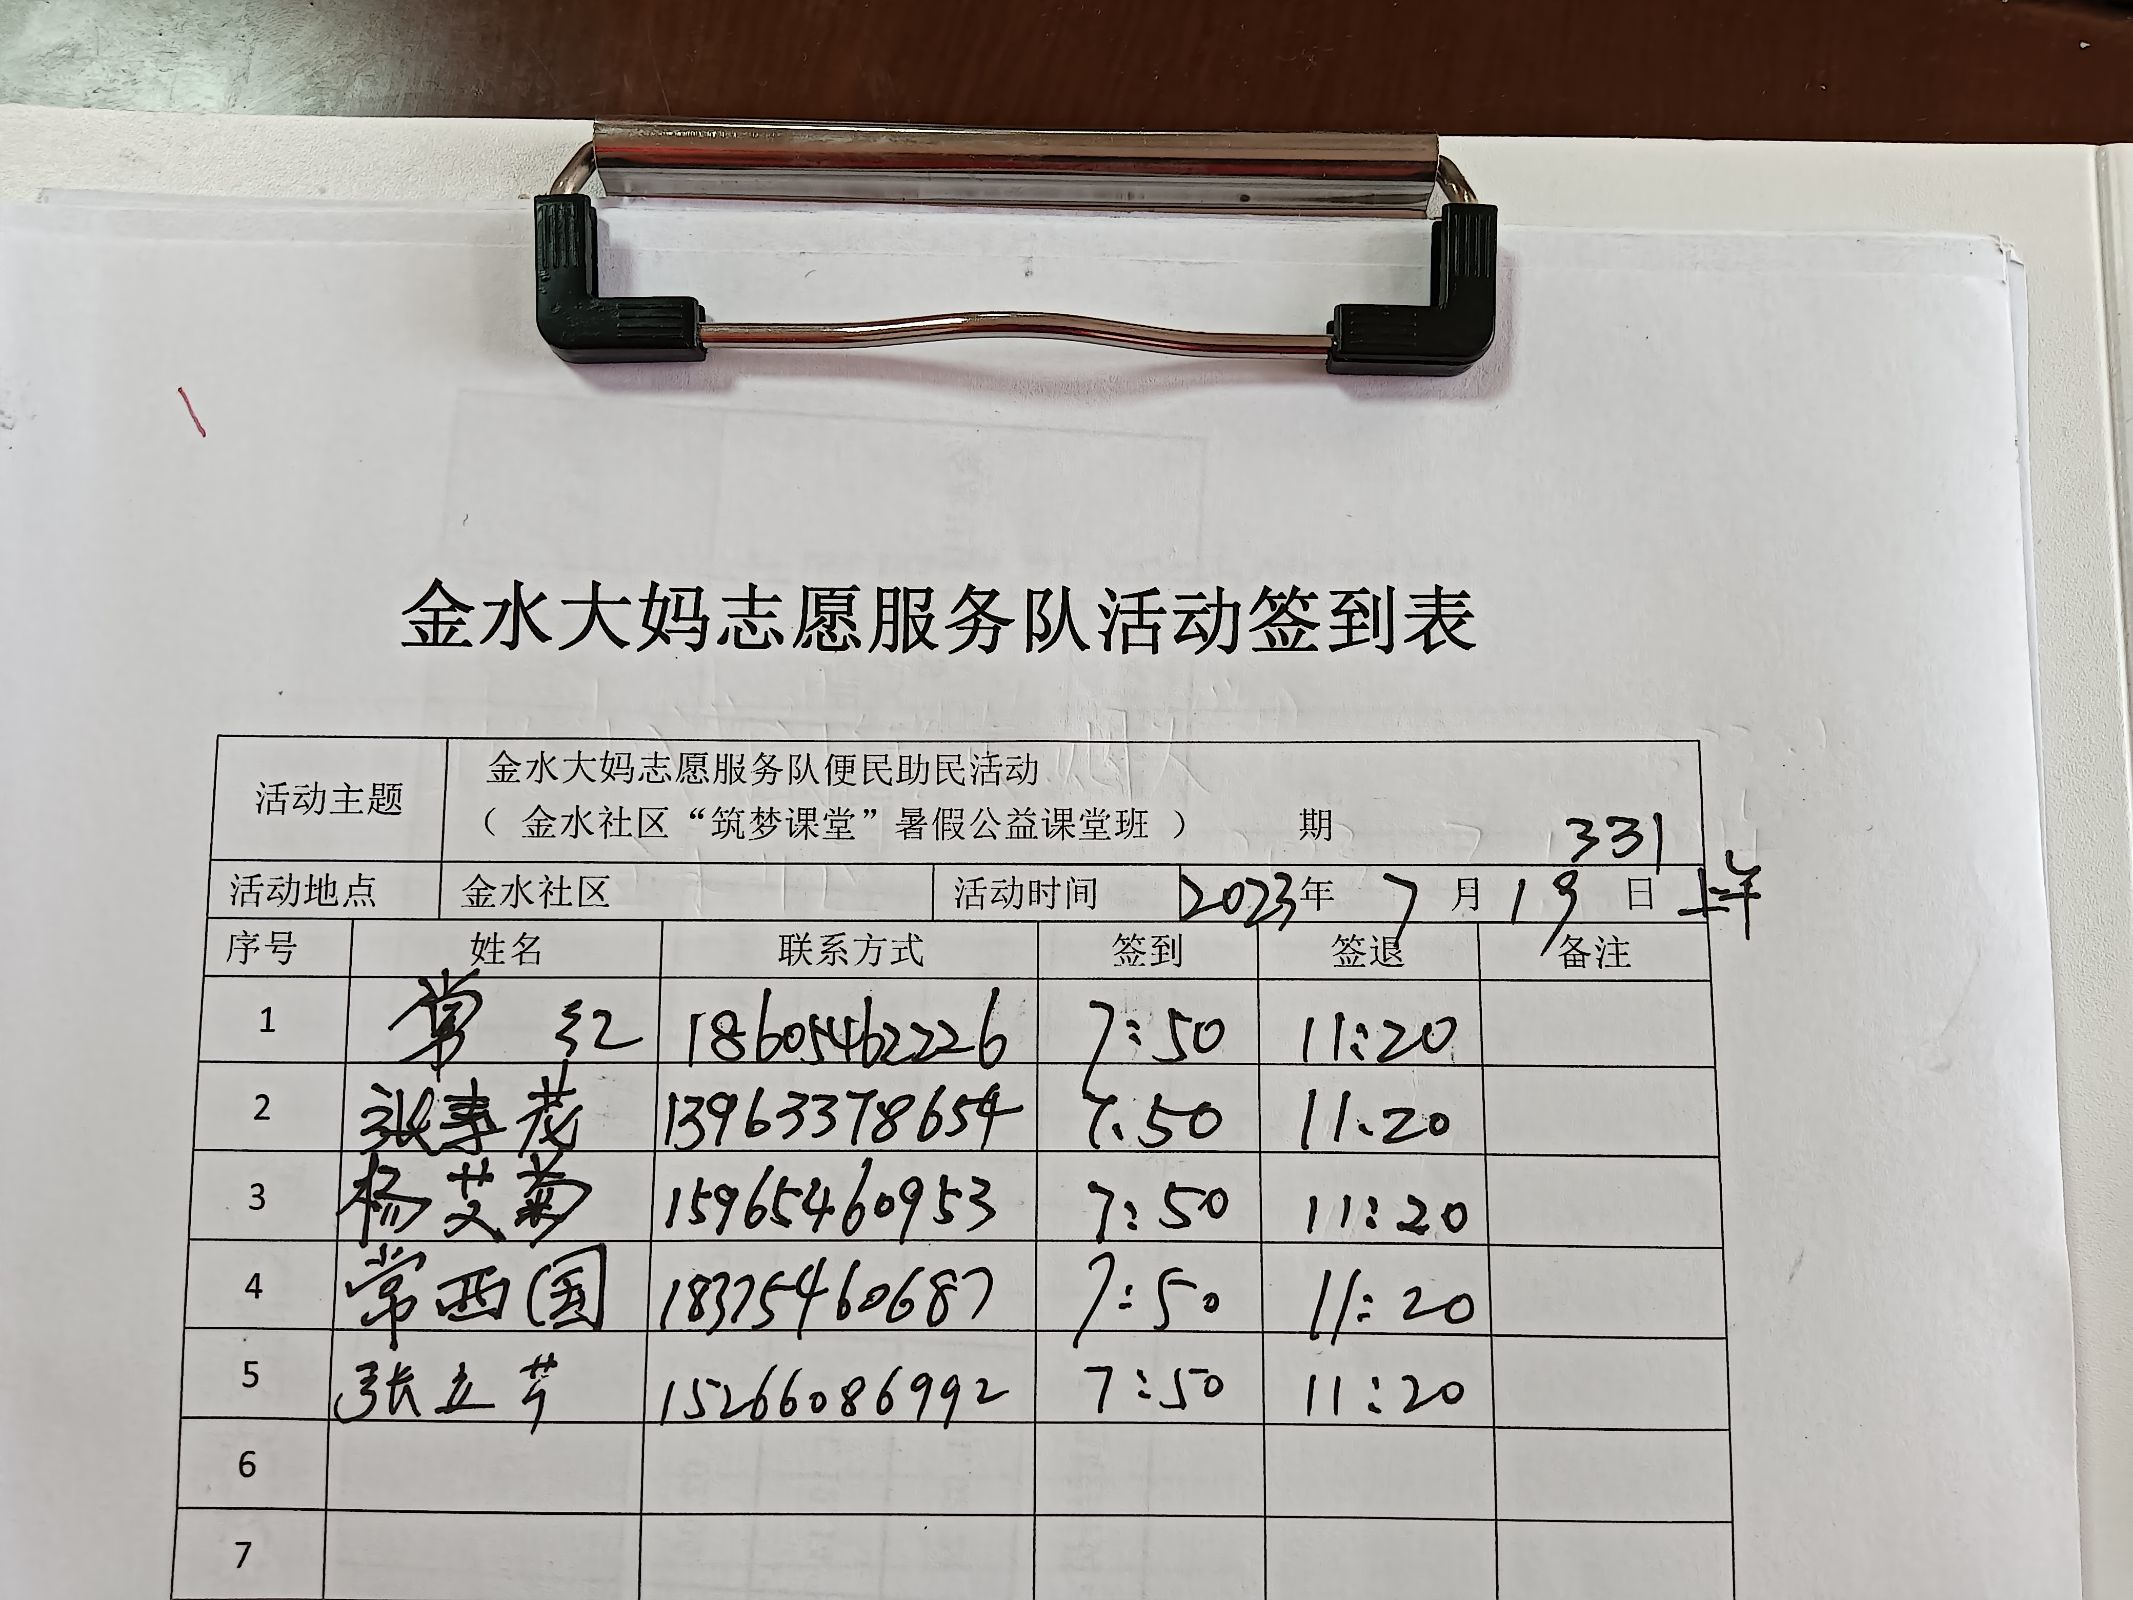 金水大妈志愿服务队活动签到表
活动主题 金水大妈志愿服务队便民助民活动
（ 金水社区“筑梦课堂”暑假公益课堂班 ） 期 331
活动地点 金水社区 活动时间 2023年 7 月 19 日 上午
序号 姓名 联系方式 签到 签退 备注
1 常 红 18605462226 7:50 11:20
2 张寿茂 13963378654 7:50 11:20
3 杨艾菊 15965460953 7:50 11:20
4 常西国 18375460687 7:50 11:20
5 张立芹 15266086992 7:50 11:20
6
7